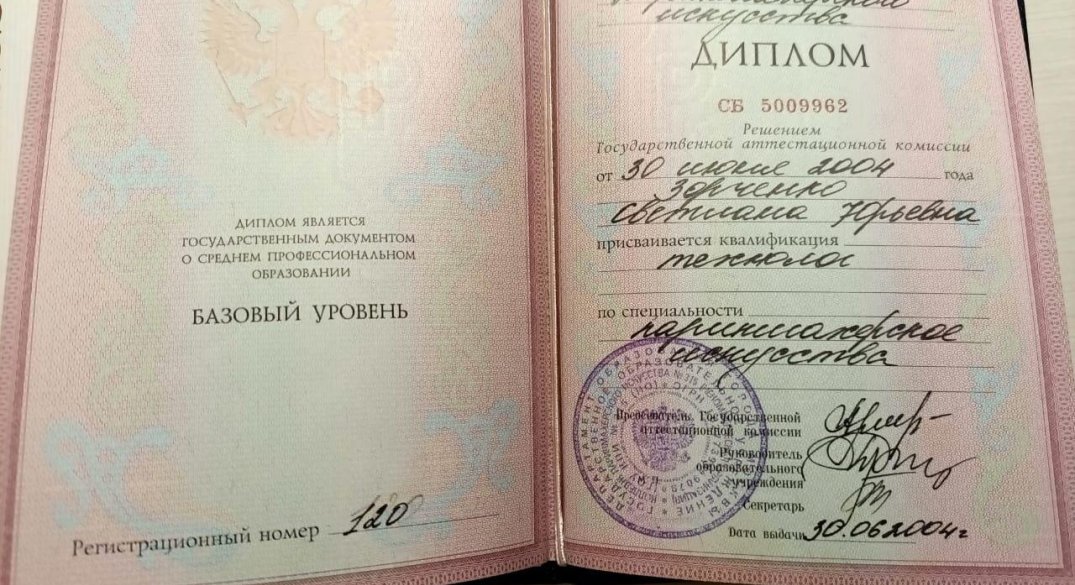 ДИПЛОМ ЯВЛЯЕТСЯ
ГОСУДАРСТВЕННЫМ ДОКУМЕНТОМ
О СРЕДНЕМ ПРОФЕССИОНАЛЬНОМ
ОБРАЗОВАНИИ
БАЗОВЫЙ УРОВЕНЬ
Регистрационный номер 120
искусства
ДИПЛОМ
СБ 5009962
Решением
Государственной аттестационной комиссии
от 30 июня 2004 года
Светлана Юрьевна
присваивается квалификация
технолог
по специальности
парикмахерское
искусства
Председатель Государственной
аттестационной комиссии
Руководитель
образовательного
учреждения
Секретарь
Дата выдачи 30.06.2004г